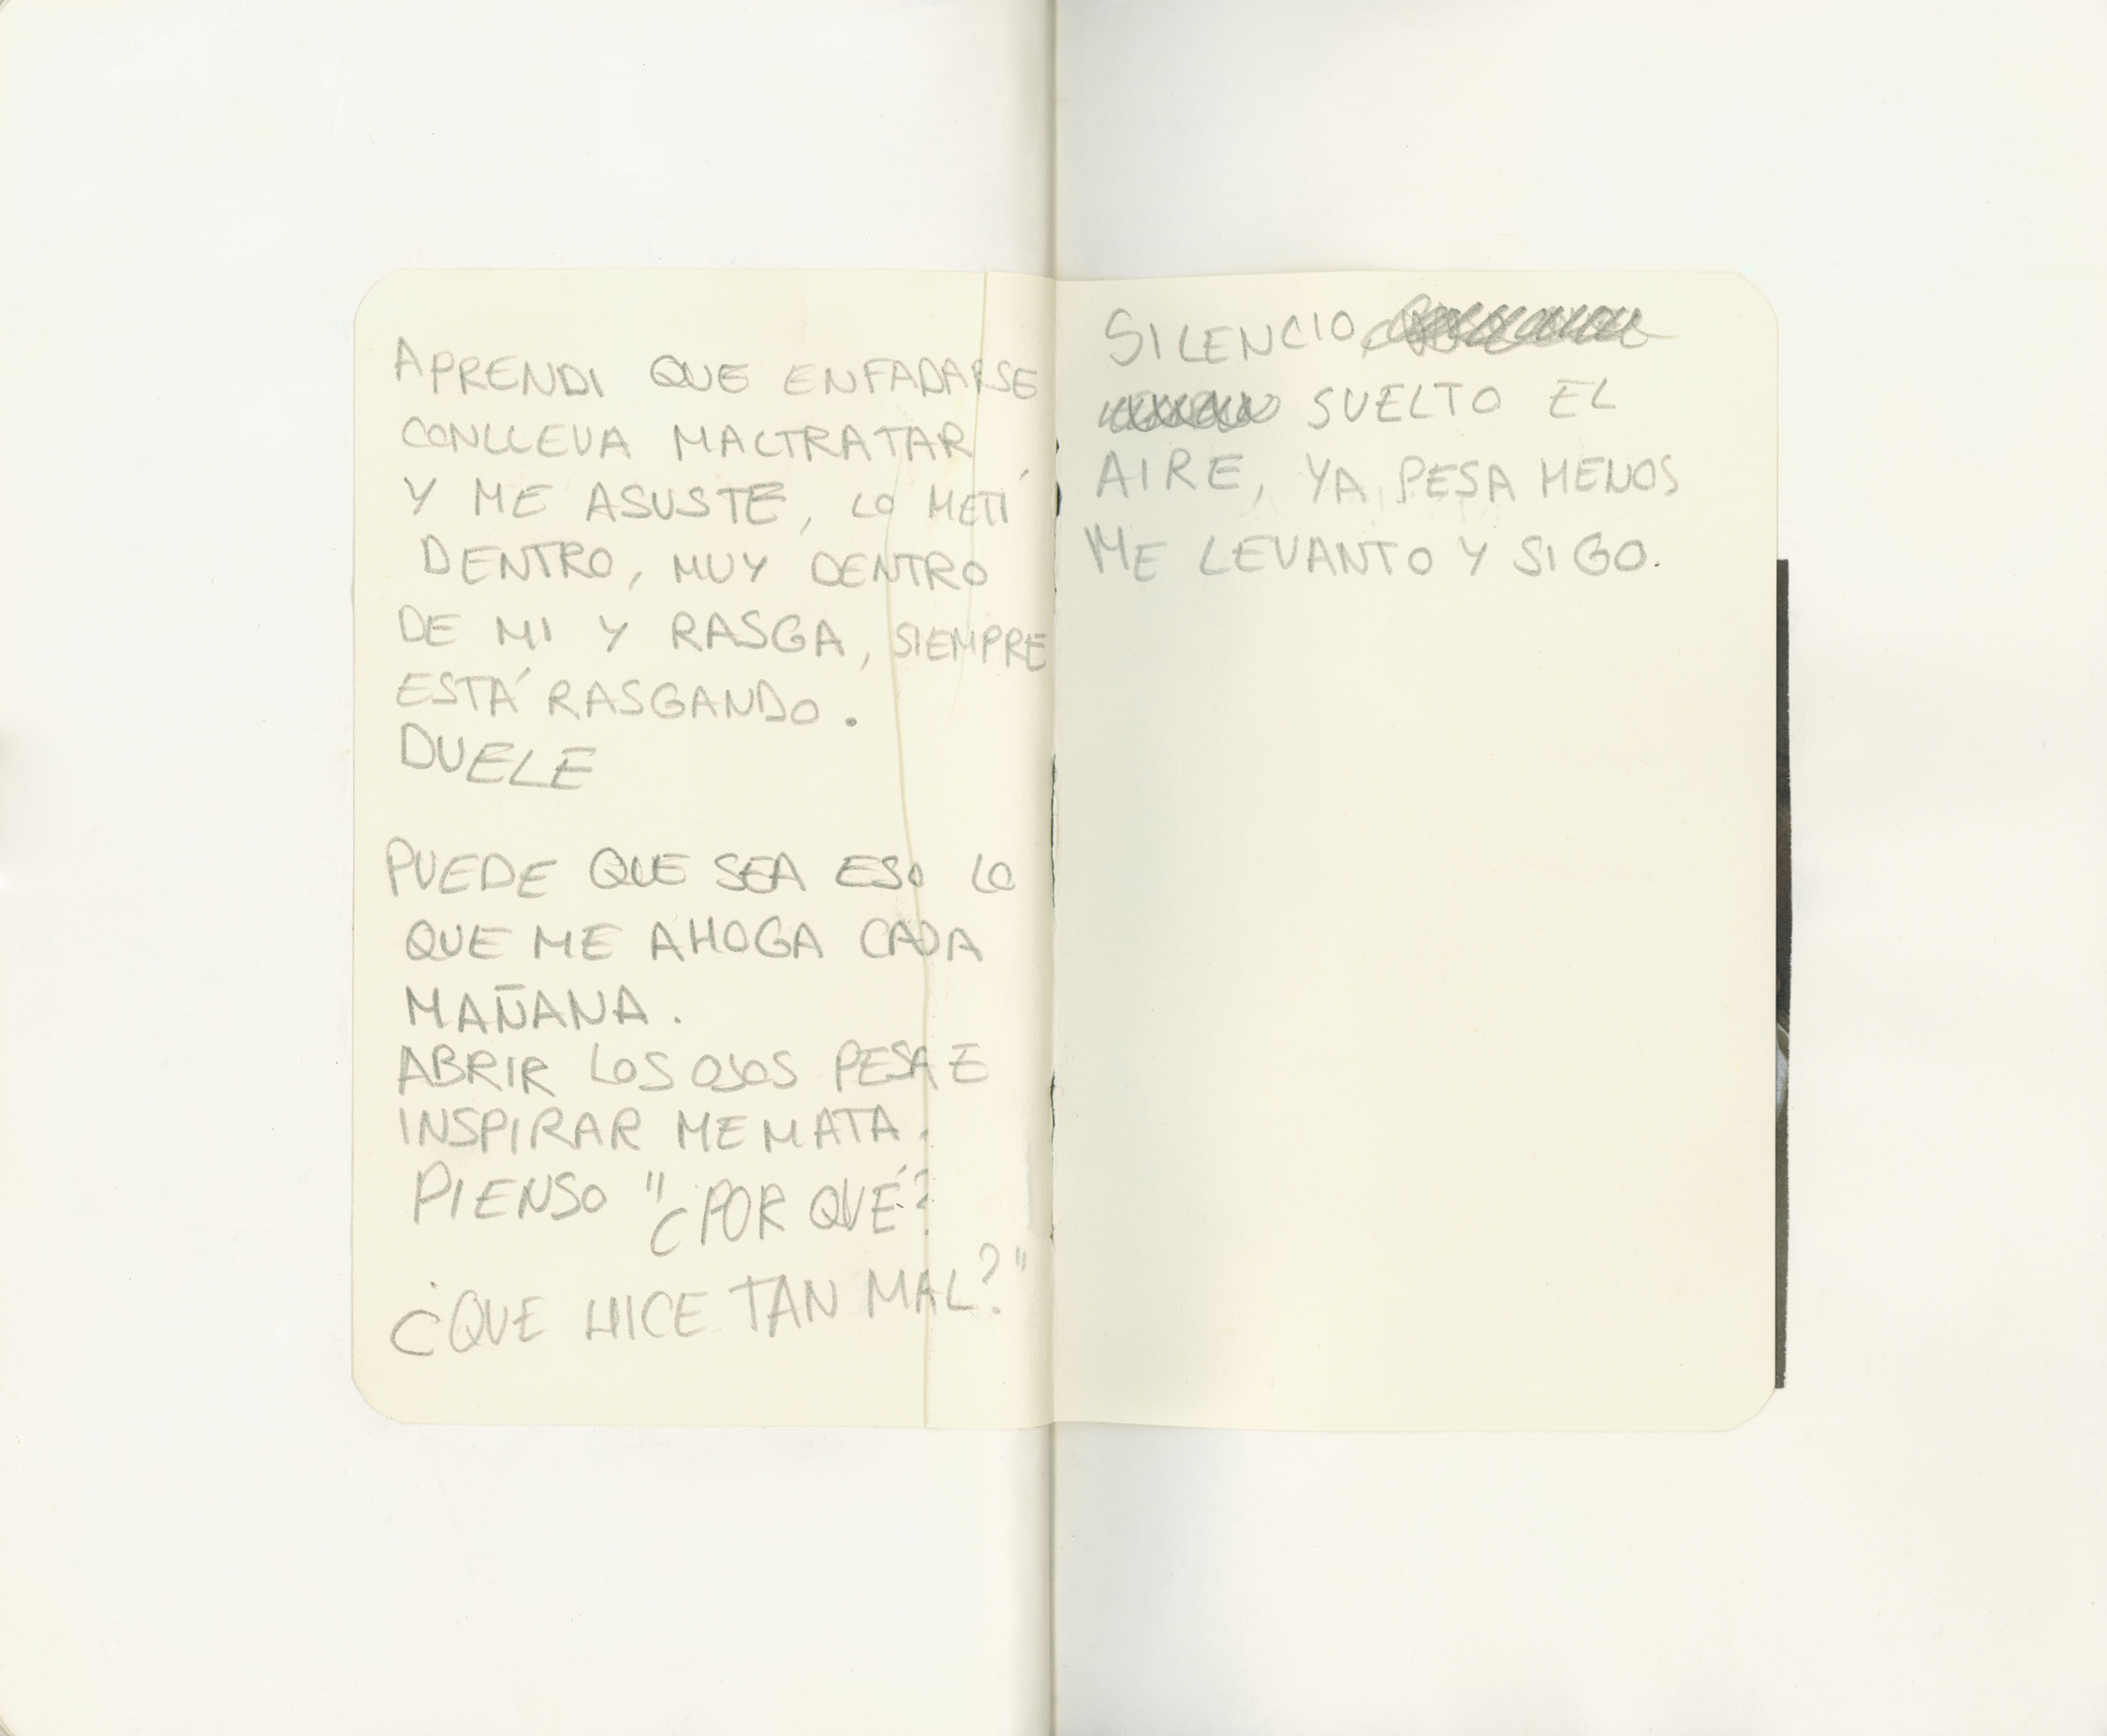 APRENDI QUE ENFADARSE
CONLLEVA MALTRATAR
Y ME ASUSTE, LO METÍ
DENTRO, MUY DENTRO
DE MI Y RASGA, SIEMPRE
ESTÁ RASGANDO.
DUELE
PUEDE QUE SEA ESO LO
QUE ME AHOGA CADA
MAÑANA.
ABRIR LOS OJOS PESA E
INSPIRAR ME MATA.
PIENSO "¿POR QUÉ?
¿QUE HICE TAN MAL?"
SILENCIO,
SUELTO EL
AIRE, YA PESA MENOS
ME LEVANTO Y SIGO.